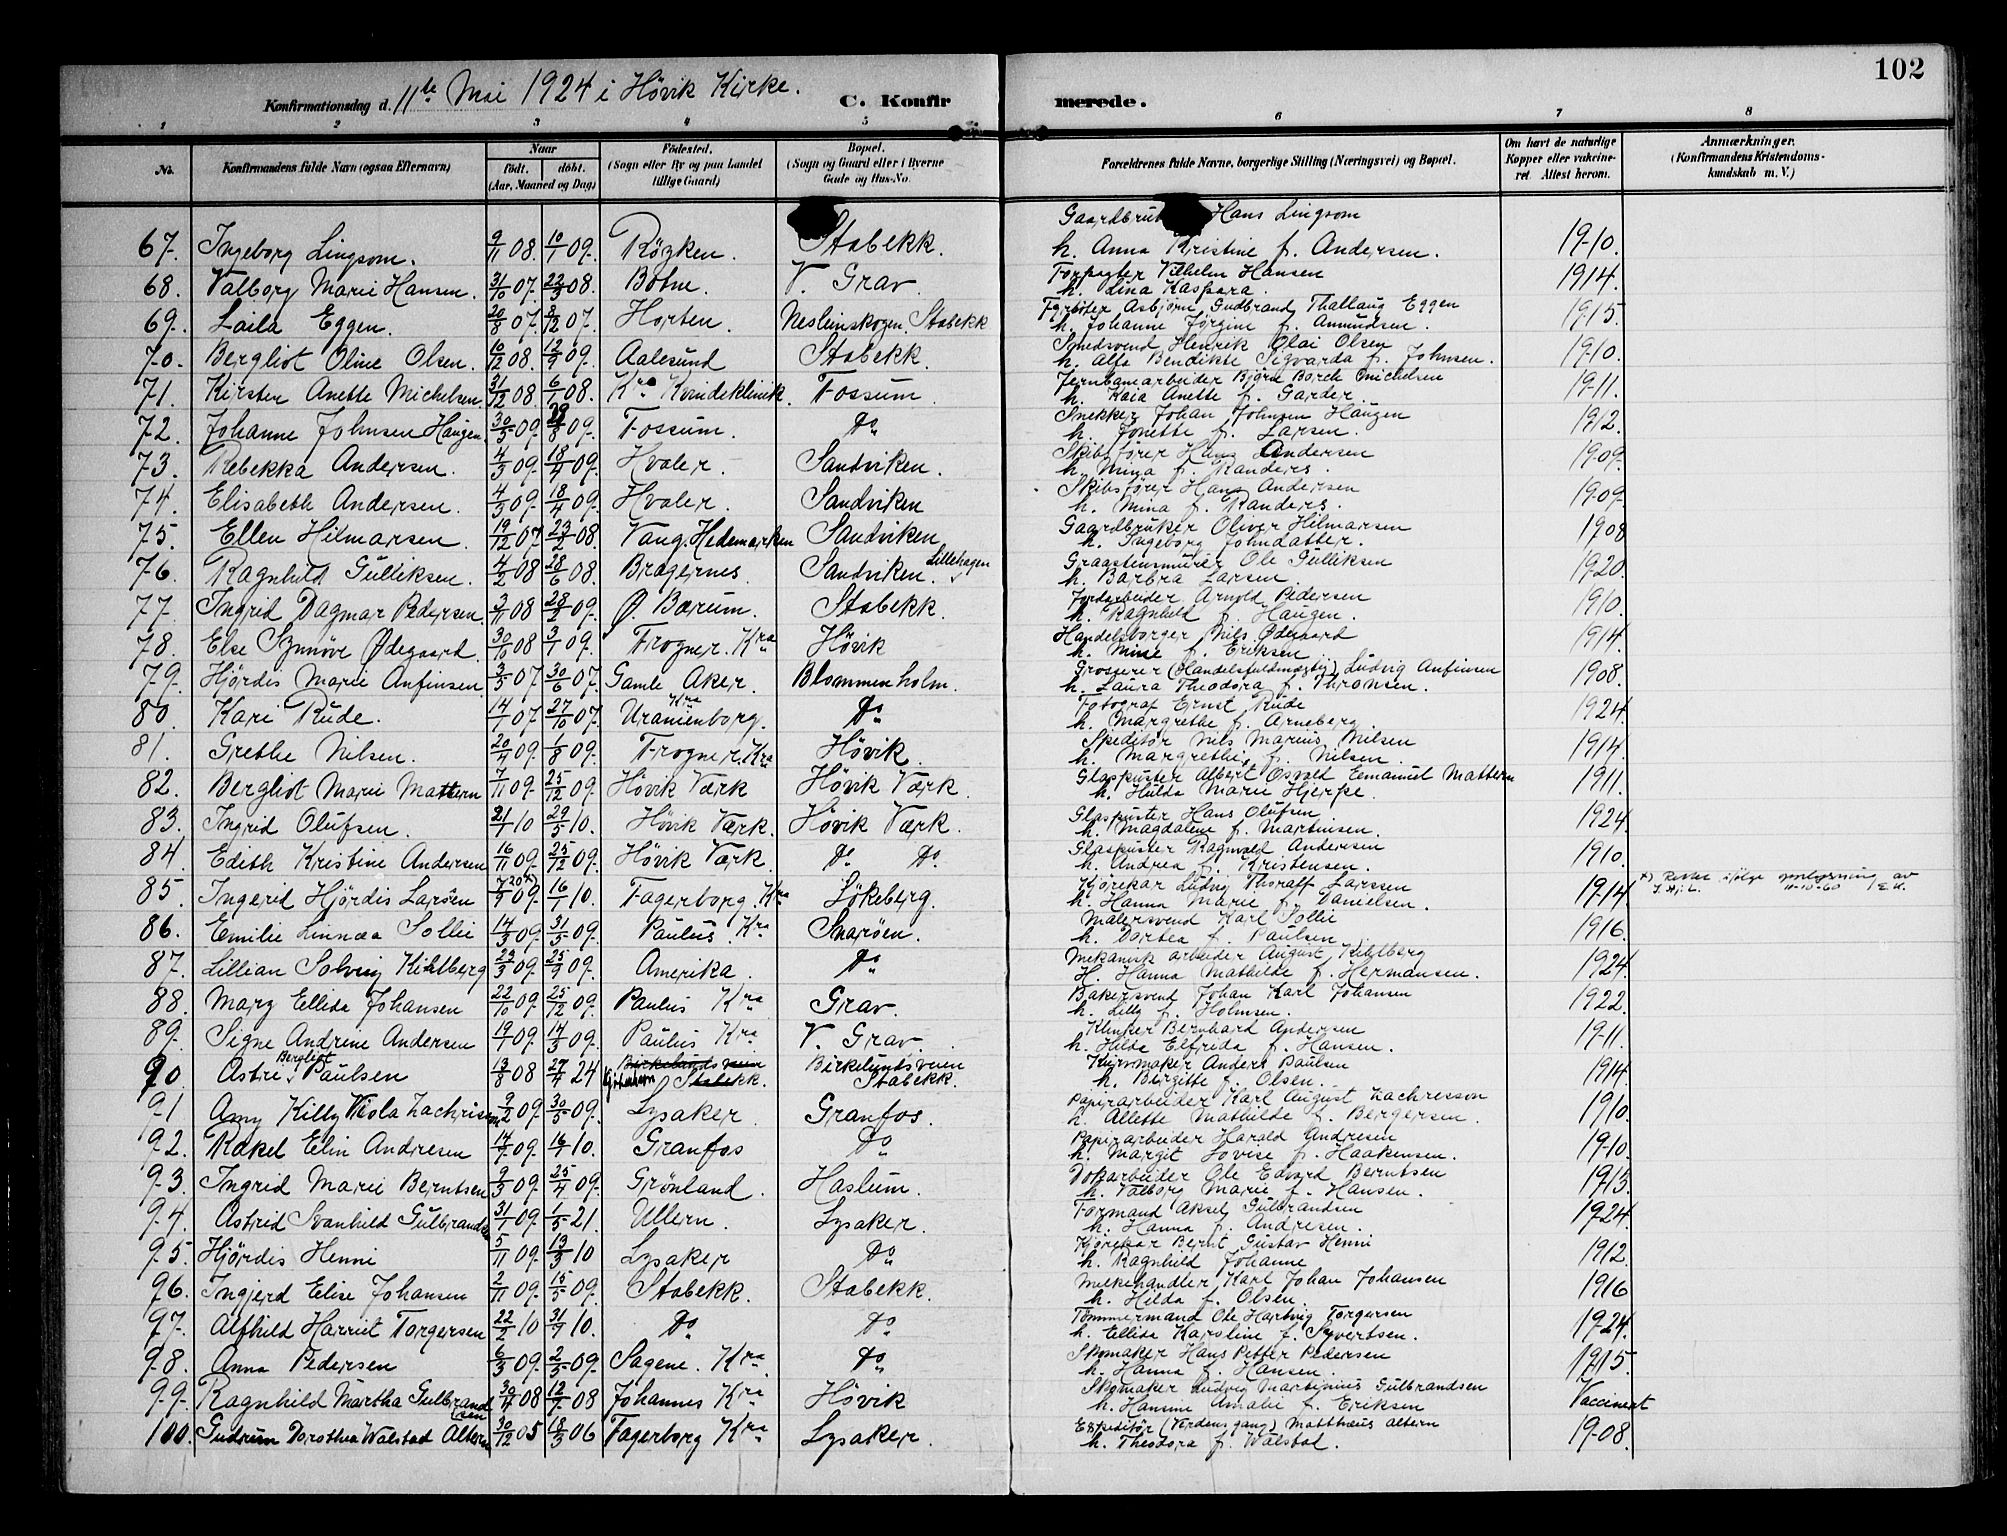 102
Konfirmationsdag d. 11te Mai 1924 i Høvik Kirke. C. Konfirmerede.
1 2 3 4 5 6 7 8
No. Konfirmandens fulde Navn (ogsaa Efternavn) Naar født. døbt. (Aar, Maaned og Dag) Fødested. (Sogn eller By og paa Landet tillige Gaard) Bopæl. (Sogn og Gaard eller i Byerne Gade og Hus-No. Forældrenes fulde Navne, borgerlige Stilling (Næringsvei) og Bopæl. Om havt de naturlige Kopper eller vakcineret. Attest herom. Anmærkninger. (Konfirmandens Kristendomskundskab m. V.)
67. Ingeborg Lingsom. 9/11 08. 10/1 09. Røyken. Stabekk. Hans Lingsom
h. Anna Kristine f. Andersen. 1910.
68. Valborg Marie Hansen. 31/10 07. 22/3 08. Botne. V. Grav. Forpagter Vilhelm Hansen
h. Lina Kaspara. 1914.
69. Laila Eggen. 20/8 07. 8/12 07. Horten. Stabekk Fyrbøter Asbjørn Gudbrand Thallaug Eggen
h. Johanne Jørgine f. Amundsen. 1915.
70. Bergliot Oline Olsen. 16/12 08. 12/9 09. Aalesund Stabekk. Smedsvend Henrik Olai Olsen
h. Alfa Bendikte Sigvarda f. Johnsen. 1910.
71. Kirsten Anette Michelsen 31/12 08. 6/1 08. Kra Kvindeklinik. Fossum. Jernbanarbeider Bjørn Borch Michelsen
h. Kaia Anette f. Garder. 1911.
72. Johanne Johnsen Haugen. 30/5 09. 29/8 09. Fossum. Do Snekker Johan Johnsen Haugen
h. Jonette f. Larsen. 1912.
73. Rebekka Andersen. 4/3 09. 18/4 09. Hvaler. Sandviken. Skibsfører Hans Andersen
h. Mina f. Randers. 1909.
74. Elisabeth Andersen. 4/3 09. 18/4 09. Hvaler. Sandviken Skibsfører Hans Andersen
h. Mina f. Randers. 1909.
75. Ellen Hilmarsen. 19/12 07. 23/2 08. Vang. Hedemarken Sandviken Gaardbruker Oliver Hilmarsen
h. Ingeborg Johndatter. 1908
76. Ragnhild Gulliksen. 4/2 08 28/6 08. Bragernes. Sandviken. Lillehagen Graastensmurer Ole Gulliksen
h. Barbra Larsen. 1920.
77. Ingrid Dagmar Pedersen. 3/11 08 28/2 09. Ø. Bærum. Stabekk. Jordarbeider Arnold Pedersen
h. Ragnhild f. Haugen. 1910.
78. Else Synnøve Ødegaard. 30/10 08 3/1 09. Frogner. Kra Høvik Handelsborger Nils Ødegaard
h. Mine f. Eriksen 1914.
79. Hjørdis Marie Anfinsen 3/5 07 30/6 07. Gamle Aker. Blommenholm. Grosserer (Handelsfuldmægtig) Ludvig Anfinsen
h. Laura Theodora f. Thronsen. 1908.
80. Kari Rude. 14/1 07. 27/10 07. Uranienborg. Kra Do Fotograf Ernst Rude
h. Margrethe f. Arneberg. 1924.
81. Grethe Nilsen. 20/4 09. 1/8 09. Frogner. Kra Høvik. Speditør Nils Marius Nilsen
h. Margrethe f. Nilsen. 1914.
82. Bergliot Marie Mattern 7/11 09. 25/12 09. Høvik Værk Høvik Værk. Glaspuster Albert Osvald Emanuel Mattern
h. Hulda Marie Hjerpe. 1911.
83. Ingrid Olufsen. 21/1 10 29/5 10. Høvik Værk. Høvik Værk. Glaspuster Hans Olufsen
h. Magdalene f. Martinsen. 1924.
84. Edith Kristine Andersen 16/11 09. 25/12 09. Høvik Værk. Do Do. Glaspuster Ragnvald Andersen
h. Andrea f. Kristensen. 1910.
85. Ingerid Hjørdis Larsen 7/9 09. 16/1 10. Fagerborg. Kra Løkeberg. Kjørekar Ludvig Thoralf Larssen
h. Hanna Marie f. Danielsen. 1914 x) Rettet ifølge oplysning av
I. Hj. L. 11-10-60
86. Emilie Linnæa Sollie 14/3 09. 31/5 09. Paulus. Kra Snarøen. Malersvend Karl Sollie
h. Dortea f. Paulsen 1916.
87. Lillian Solveig Kihlberg 23/3 09. 25/9 09. Amerika. Do Mekanisk arbeider August Kihlberg
H. Hanna Mathilde f. Hermansen. 1924.
88. Mary Ellida Johansen 22/10 09. 25/12 09. Paulus Kra Grav. Bakersvend Johan Karl Johansen
h. Lilly f. Holmsen. 1922.
89. Signe Andrine Andersen 19/1 09. 14/3 09. Paulus Kra V. Grav. Klinker Bernhard Andersen
h. Hilda Elfrida f. Hansen. 1911.
90 Astri Bergliot Paulsen 13/8 08 27/4 24 Birkelundsveien Stabekk. Birkelundsveien Stabekk. Kurvmaker Anders Paulsen
h. Birgitte f. Olsen. 1914.
91 Amy Killy Viola Zachrisson 9/2 09. 30/5 09. Lysaker Granfos. Papirarbeider Karl August Zachresson
h. Allette Mathilde f. Bergersen. 1910.
92. Rakel Elin Andresen 14/9 09. 16/1 10. Granfos Do Papirarbeider Harald Andresen
h. Margit Lovise f. Haakensen. 1910.
93. Ingrid Marie Berntsen 9/3 09. 25/4 09. Grønland. Haslum. Dokarbeider Ole Edvard Berntsen
h. Valborg Marie f. Hansen. 1913.
94. Astrid Svanhild Gulbrandsen 31/1 09. 1/5 21. Ullern. Lysaker. Formand Aksel Gulbrandsen
h. Hanna f. Andresen. 1924.
95. Hjørdis Henni 5/11 09. 13/3 10 Lysaker Do Kjørekar Bernt Gustav Henni
h. Ragnhild Johanne 1912.
96. Ingjerd Elise Johansen 2/11 09. 15/5 09. Stabekk. Stabekk. Melkehandler Karl Johan Johansen
h. Hilda f. Olsen. 1916
97. Alfhild Harriet Torgersen 22/2 10 31/7 10. Do Do Tømmermand Ole Hartvig Torgersen
h. Ellida Karoline f. Syvertsen. 1924.
98. Anna Pedersen 6/3 09. 2/5 09. Sagene. Kra Do Skomaker Hans Petter Pedersen
h. Hanna f. Hansen. 1915.
99. Ragnhild Martha Gulbrandsen 30/4 08 12/7 08 Johannes Kra Høvik Skomaker Ludvig Martinius Gulbrandsen
h. Hansine Amalie f. Eriksen Vaccinert
100. Gudrun Dorothea Walstad Altern 30/12 05 18/3 06 Fagerborg Kra Lysaker. Expeditør (Verdens gang) Matthæus Altern
h. Theodora f. Walstad. 1908.